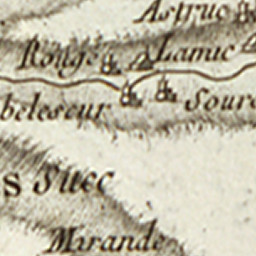 Astruc
Rouge Lamic
beleseur Sour
s Suec
Mirande